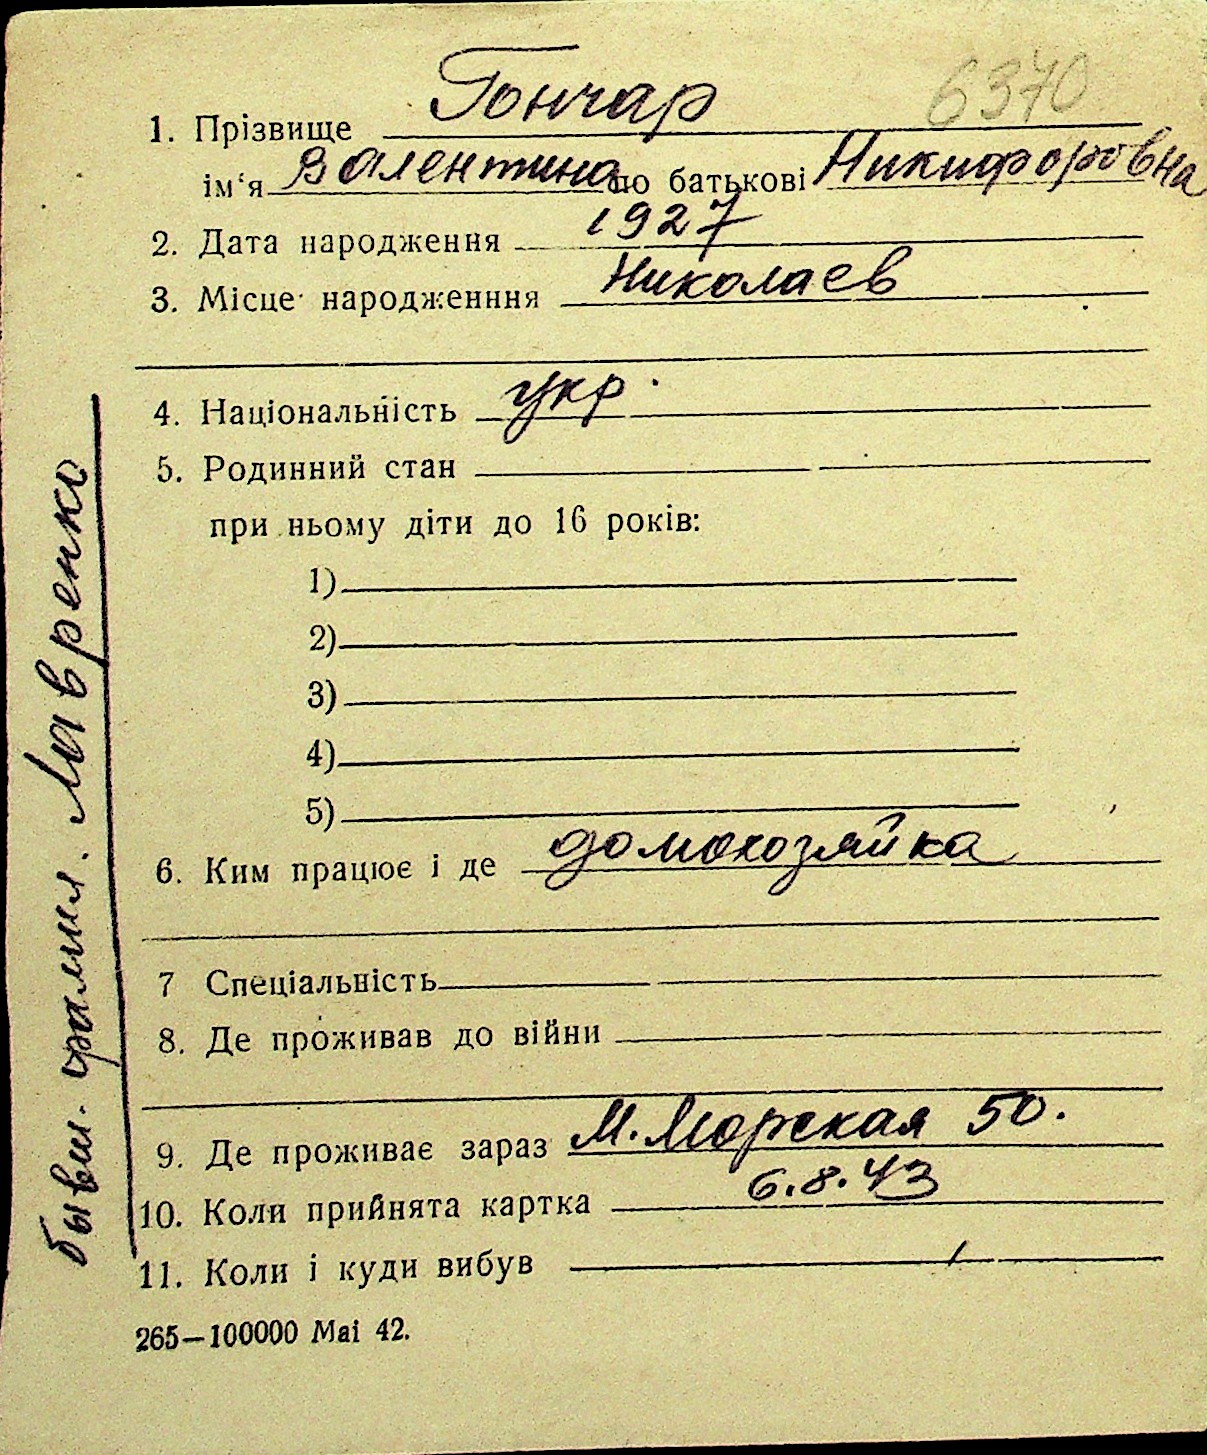 6370
1. Прізвище Гончар
ім‘я Валентина по батькові Никифоровна
2. Дата народження 1927
3. Місце народженння Николаев
4. Національність укр.
5. Родинний стан
при ньому діти до 16 років:
1)
2)
3)
4)
5)
6. Ким працює і де домохозяйка
7 Спеціальність
8. Де проживав до війни
9. Де проживає зараз М. Морская 50.
10. Коли прийнята картка 6.8.43
11. Коли і куди вибув
265—100000 Mai 42.
бывш. фамил. Лавренко